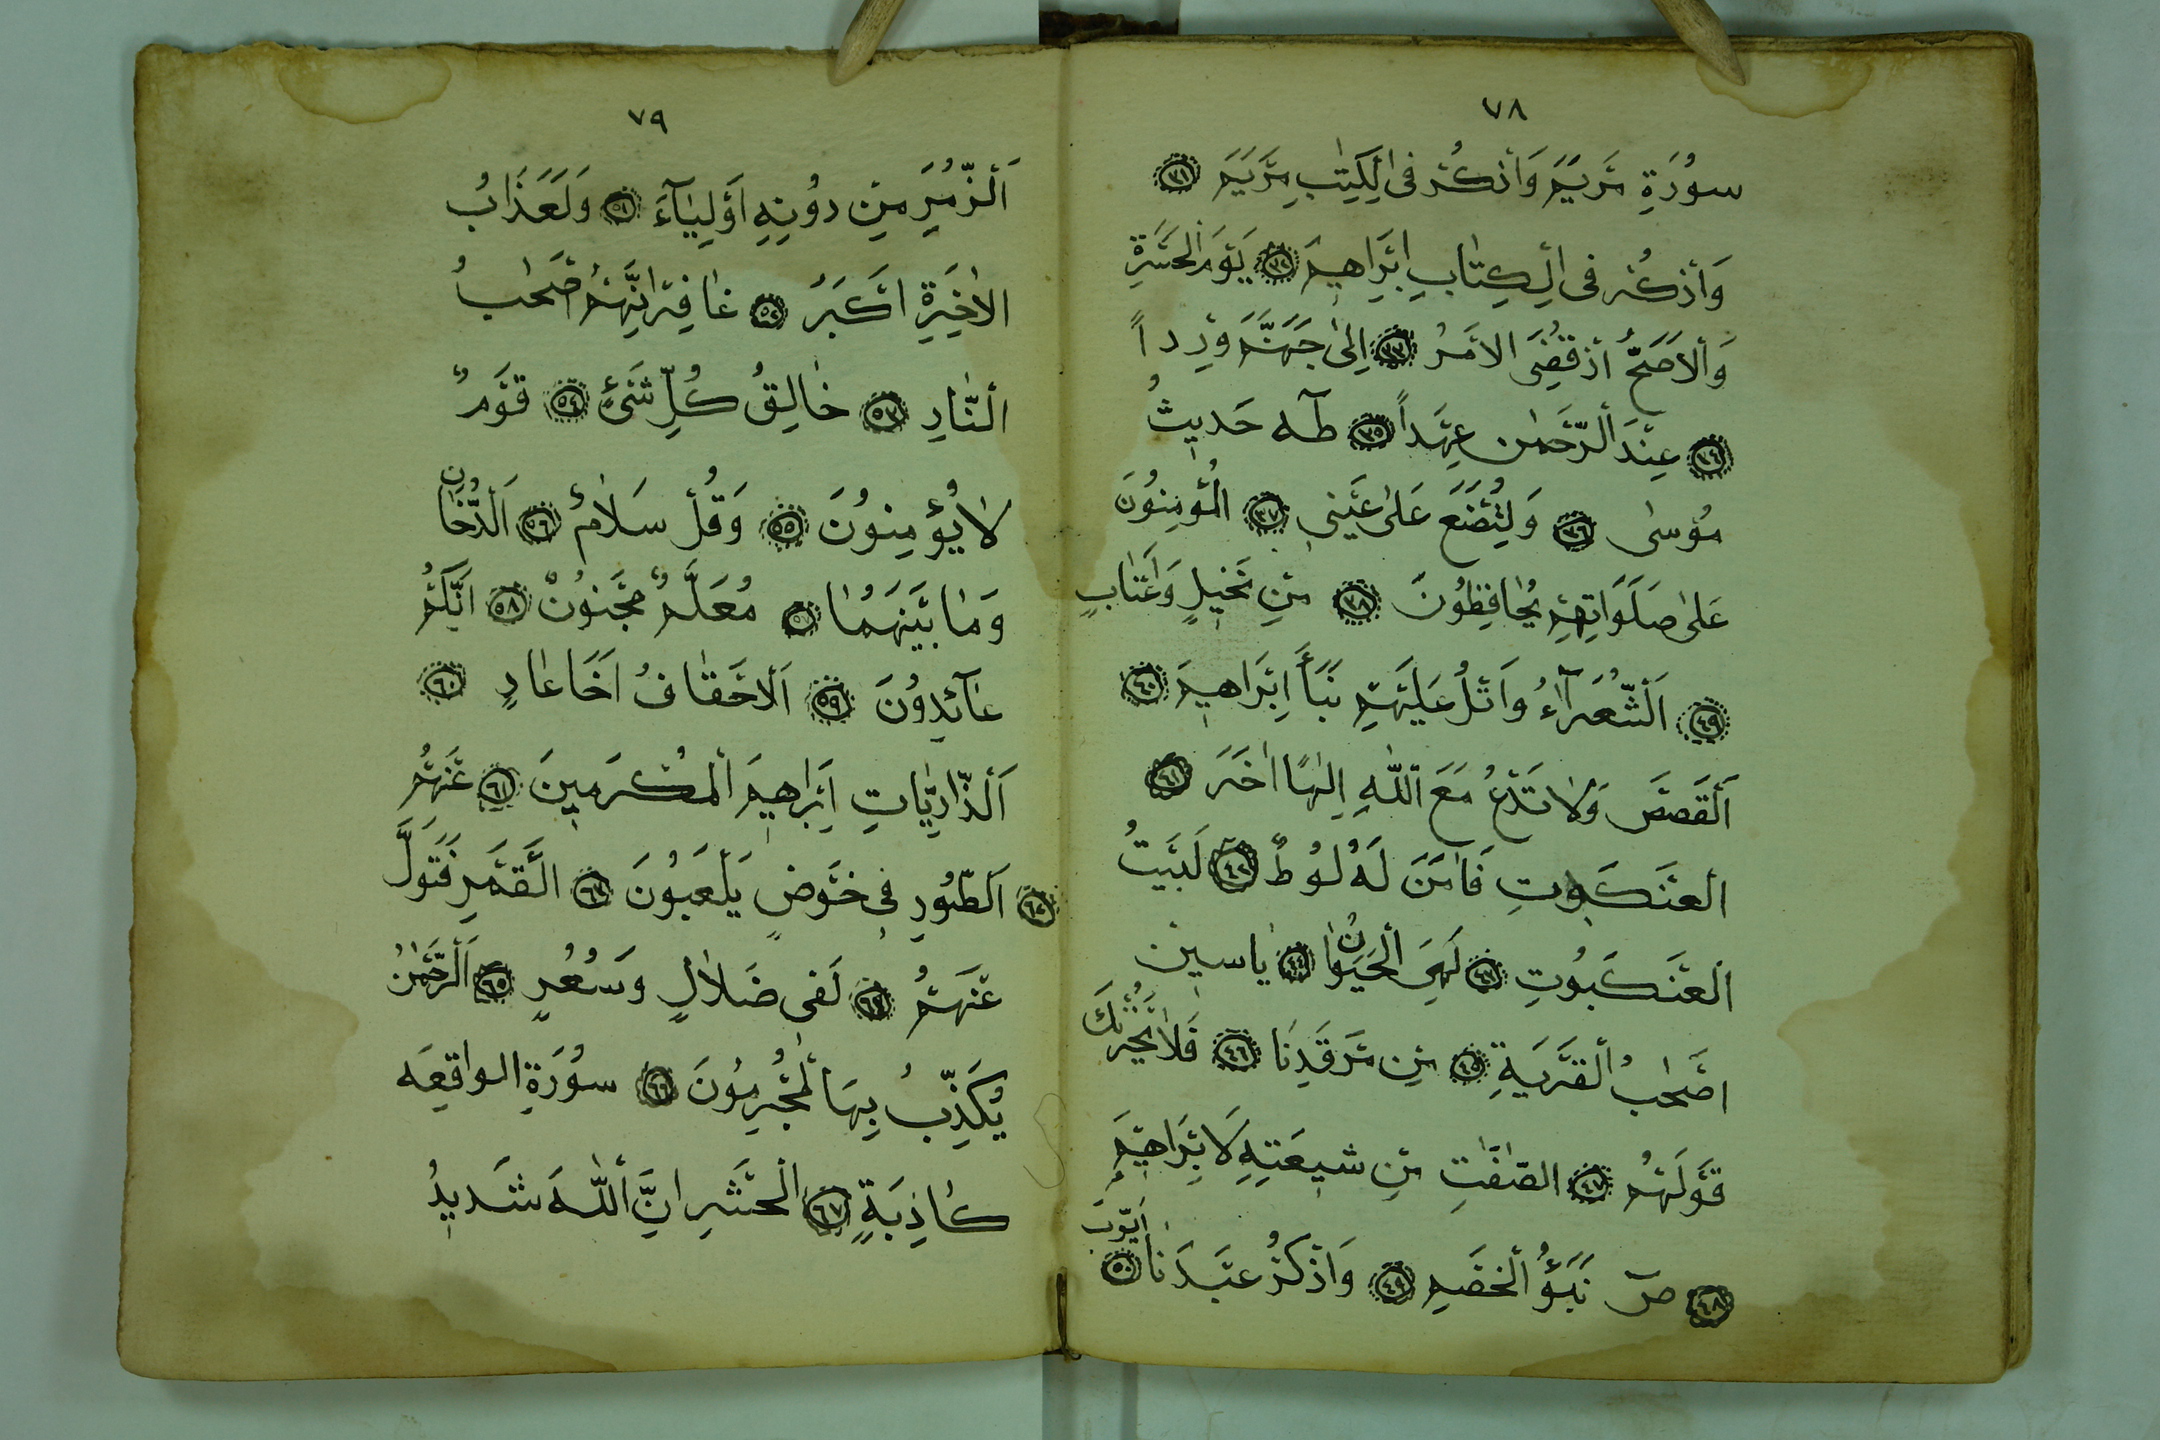 ٧٨
سُورَةِ مَرْيَمَ وَأذكُرْ فِى الْكِتٰبِ مَرْيَمَ ٣١
وَأذكُرْ فى الْكِتٰابِ اِبْرَاهِيمَ ٣٢ يَوْمَ الْحَسْرَةِ
وَالاَصَحُّ اذقُضِىَ الاَمْرُ ٣٣ اِلىٰ جَهَنَّمَ وَرِداً
٣٤ عِنْدَ الرَّحْمٰنِ عَهْداً ٣٥ طٓه حَديثُ
مُوسىٰ ٣٦ وَلِتُصْنَعَ عَلىٰ عَيْنىِ ٣٧ الْمُؤْمِنوُنَ
عَلىٰ صَلَوَاتِهِمْ يُحٰافِظُونَ ٣٨ مِنْ نَخيلٍ وَاَعْنٰابٍ
٣٩ اَلشُّعَرٰٓاءُ وَاَتْلُ عَلَيْهِمْ نَبَأَ اِبْرَاهيمَ ٤٠
اَلْقَصَصَ وَلٰا تَدْعُ مَعَ اللّٰهِ اِلٰهًا اٰخَرَ ٤١
الْعَنْكَبوتِ فَاٰمَنَ لَهُ لُوطٌ ٤٢ لَبَيْتُ
الْعَنْكَبُوتِ ٤٣ لَهِىَ الْحَيَوٰانُ ٤٤ يٰاسين
اصْحٰبُ الْقَرْيَةِ ٤٥ مِن مَرْقَدِنٰا ٤٦ فَلٰا يَحْزُنْكَ
قَوْلَهُمْ ٤٧ الصّٰفّٰتِ مِن شيعَتِهِ لَاِبْرَاهيمَ
٤٨ صٓ نَبَؤُ الْخَصْمِ ٤٩ وَاذْكُرْ عَبْدَنٰا اَيّوُبَ ٥٠
٧٩
اَلزُّمَرِ مِنْ دوُنِهِ اَوْلِيٰٓاءَ ٥١ وَلَعَذَابُ
الاٰخِرَةِ اَكْبَرُ ٥٢ غٰافِرْ اِنَّهُمْ اصْحٰبُ
النّٰارِ ٥٣ خٰالِقُ كُلِّ شَىْءٍ ٥٤ قَوْمٌ
لٰا يُؤْمِنوُنَ ٥٥ وَقُلْ سَلاٰمٌ ٥٦ اَلدُّخٰان
وَمٰا بَيْنَهُمٰا ٥٧ مُعَلَّمٌ مَجْنوُنٌ ٥٨ اِنَّكُمْ
عٰآئِدوُنَ ٥٩ اَلاَحْقٰافُ اَخٰا عٰادٍ ٦٠
اَلذّٰارِيٰاتِ اِبْرٰاهيمَ الْمُكْرَمينَ ٦١ عَنْهُمْ
٦٢ اَلطّوُرِ فى خَوْضٍ يَلْعَبُونَ ٦٣ الْقَمَرِ فَتَوَلَّ
عَنْهُمْ ٦٤ لَفى ضَلاٰلٍ وَسُعُرٍ ٦٥ اَلرَّحْمٰنُ
يُكَذِّبُ بِهَا الْمُجْرِمُونَ ٦٦ سُورَةِ الواقِعَه
كٰاذِبَةٍ ٦٧ الْحَشْرِ اِنَّ اللّٰهَ شَديدُ